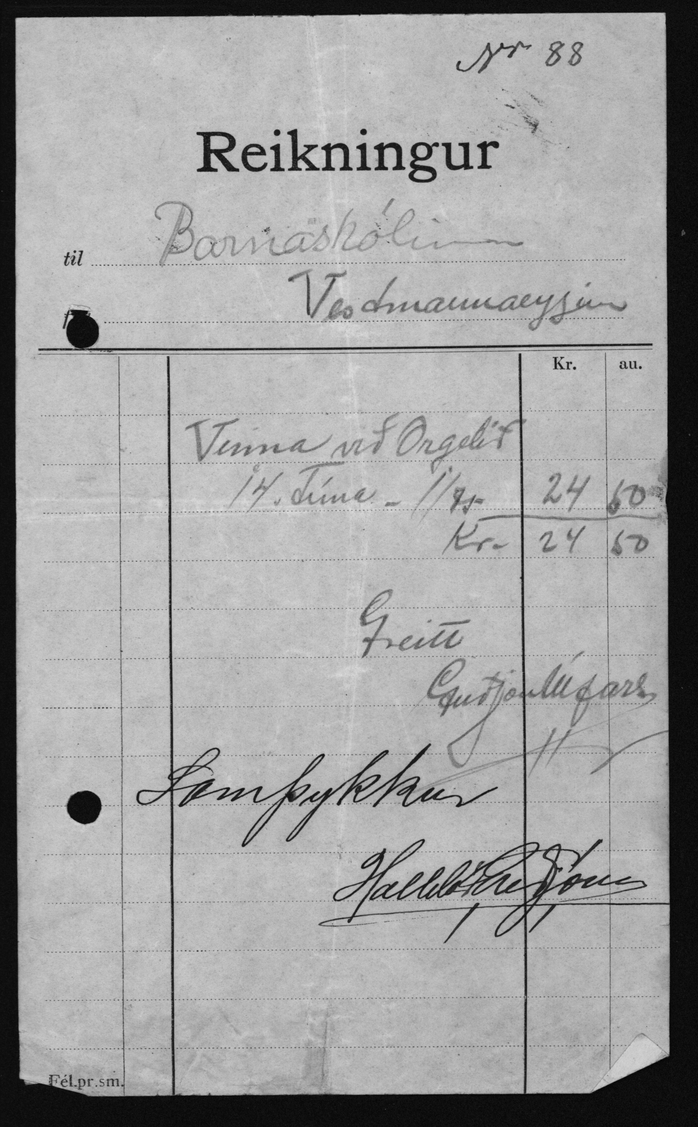 Nr 88
Reikningur
til Barnaskólinn
Vestmannaeyjum
Kr. au.
Vinna við Orgelið
14. Tíma - 1 75 24 50
Kr- 24 50
Greitt
Guðjón Úlfars
Samþykkur
Halldór Guðjóns
Fél.pr.sm.